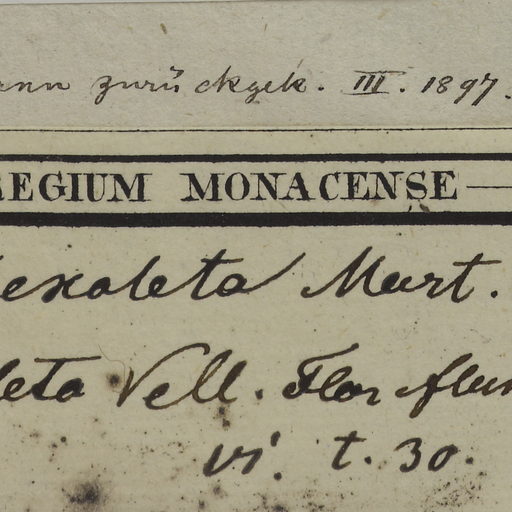 ann zurückgek. III. 1897.
REGIUM MONACENSE
exoleta Mart.
leta Vell. Flor flum
vi. t. 30.